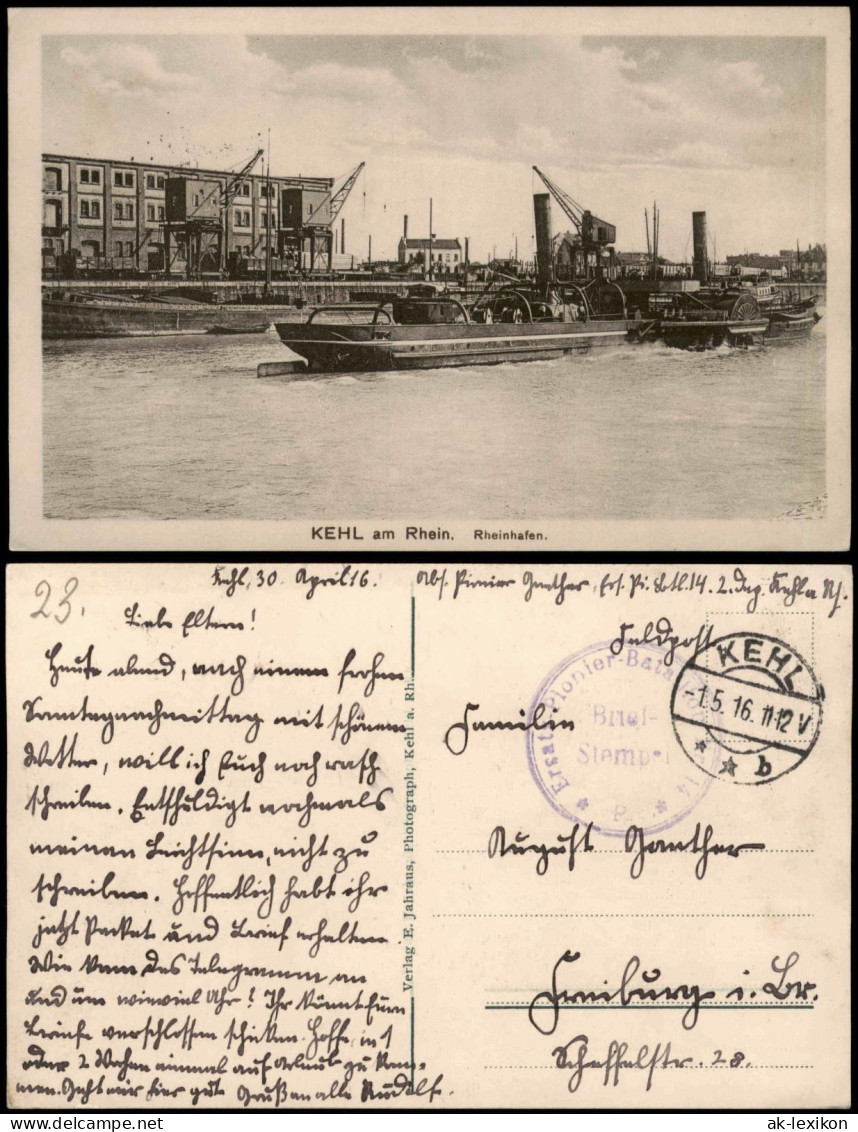 KEHL am Rhein. Rheinhafen.
23.
Kehl, 30. April 16.
Liebe Eltern!
Heute abend, nach einem frohen
Sonntagnachmittag mit schönem
Wetter, will ich Euch noch rasch
schreiben. Entschuldigt nochmals
meinen Leichtsinn, nicht zu
schreiben. Hoffentlich habt ihr
jetzt Packet und Brief erhalten.
Wie kam das Telegramm an
und um wieviel Uhr? Ihr könnt Euere
Briefe verschlossen schicken. Hoffe, in 1
oder 2 Wochen einmal auf Urlaub zu kom-
men. Geht mir hier gut. Grüße an alle Rudolf.
Verlag E. Jahraus, Photograph, Kehl a. Rh.
Abs. Pionier Ganther, Ers. Pi. Btl. 14. 2. Dep. Kehl a Rh.
Feldpost
Ersatz-Pionier-Bataillon 14
Brief-
Stempel
KEHL
-1.5.16.11-12V
* * b
Familie
August Ganther
Freiburg i. Br.
Scheffelstr. 28.
ak-lexikon